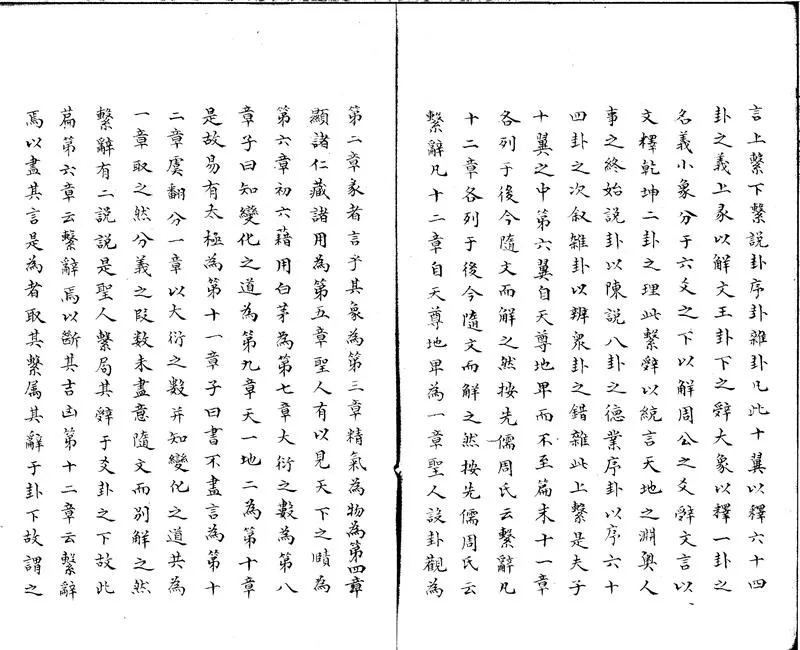 言上繫下繫說卦序卦雜卦凡此十翼以釋六十四
卦之義上彖以解文王卦下之辭大象以釋一卦之
名義小象分于六爻之下以解周公之爻辭文言以
文釋乾坤二卦之理此繫辭以統言天地之淵奧人
事之終始說卦以陳說八卦之德業序卦以序六十
四卦之次叙雜卦以辨衆卦之錯雜此上繫是夫子
十翼之中第六翼自天尊地卑而不至篇末十一章
各列于後今隨文而解之然按先儒周氏云繫辭凡
十二章各列于後今隨文而解之然按先儒周氏云
繫辭凡十二章自天尊地卑為一章聖人設卦觀為
第二章彖者言乎其象為第三章精氣為物為第四章
顯諸仁藏諸用為第五章聖人有以見天下之賾為
第六章初六藉用白茅為第七章大衍之數為第八
章子曰知變化之道為第九章天一地二為第十章
是故易有太極為第十一章子曰書不盡言為第十
二章虞翻分一章以大衍之數并知變化之道共為
一章取之然分義之段数未盡意隨文而別解之然
繫辭有二說說是聖人繫局其辭于爻卦之下故此
篇第六章云繫辭焉以斷其吉凶第十二章云繫辭
焉以盡其言是為者取其繫属其辭于卦下故謂之